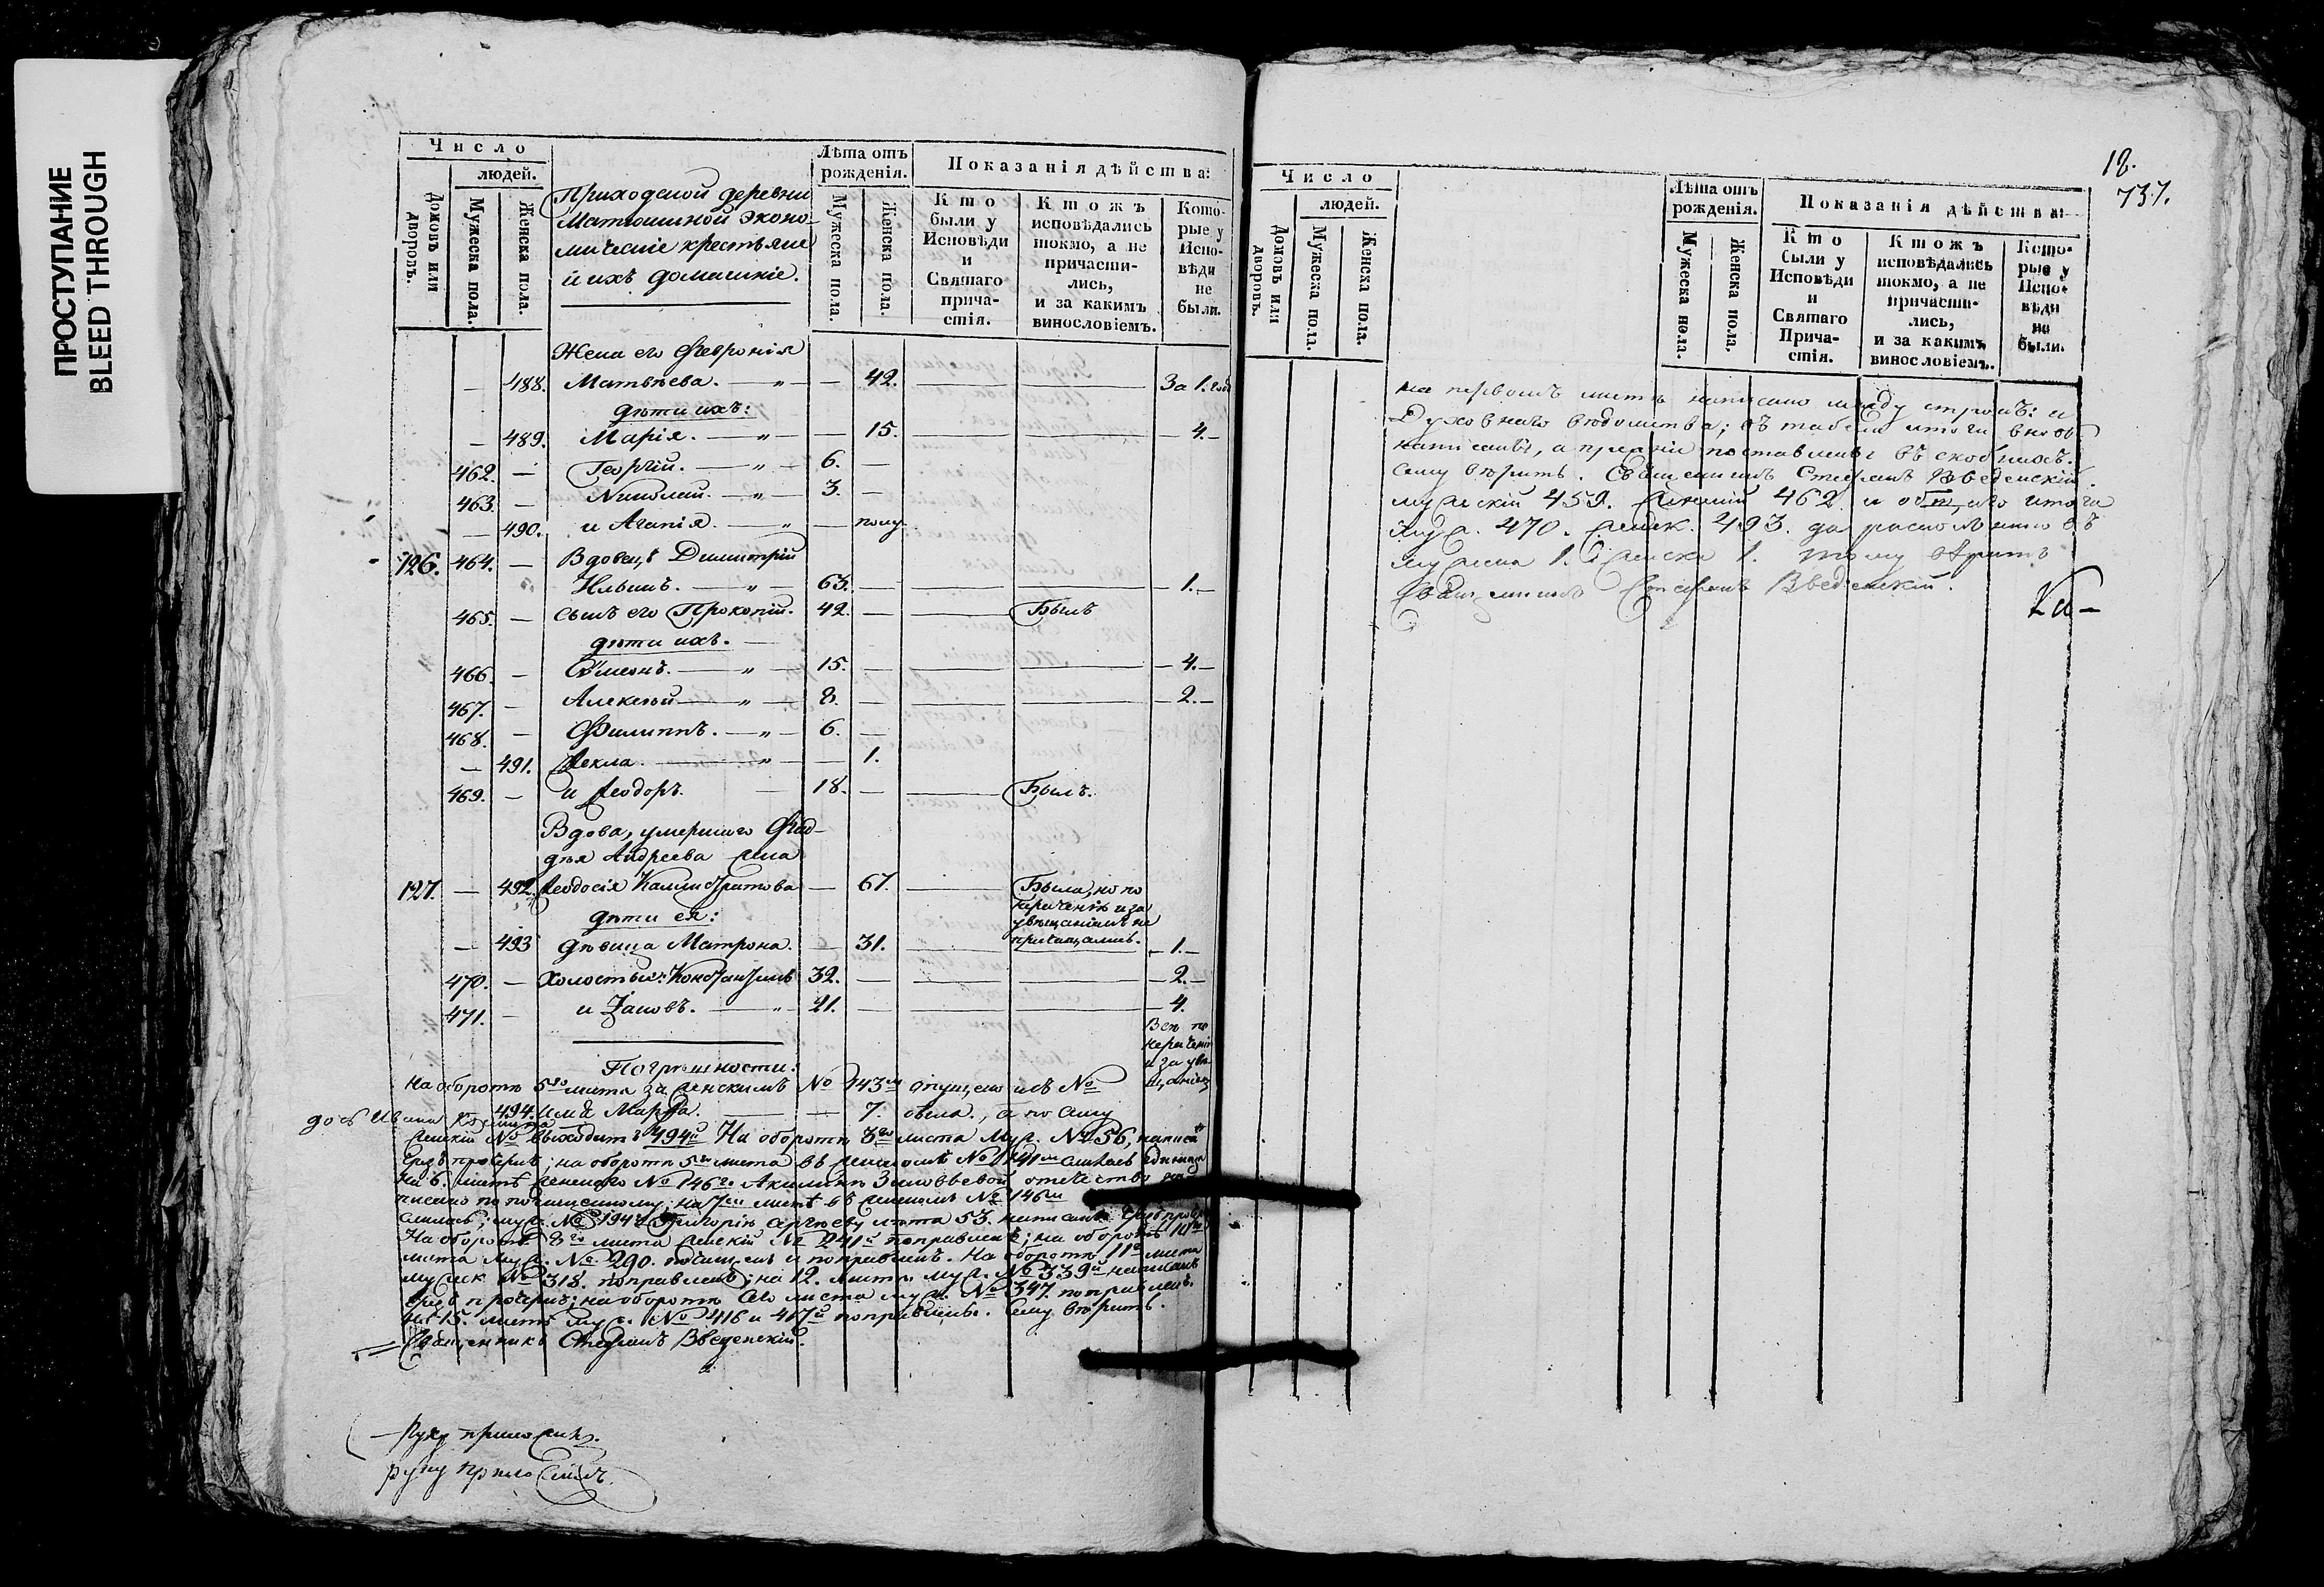 ПРОСТУПАНИЕ
BLEED THROUGH
Число
людей.
Домовъ или дворовъ.
Мужеска пола.
Женска пола.
Приходской деревни
Матюшиной эконо-
мическіе крестьяне
и ихъ домашніе.
Лѣта отъ рожденія.
Мужеска пола.
Женска пола.
Показанія дѣйства:
Кто были у Исповѣди и Святаго причастія.
Ктожъ исповѣдались токмо, а не причастились, и за какимъ винословіемъ.
Которые у Исповѣди не были.
Жена его Феѵронія
— 488. Матвѣева. — „ — — 42. За 1. годъ
дѣти ихъ:
— 489. Марія. — „ — — 15. — 4. —
462. — Георгій. — „ — 6. —
463. — Николай. — „ — 3. —
— 490. и Агапія. — „ — полу.
126. 464. — Вдовецъ Димитрій
Ильинъ. — „ — 63. — 1. —
465. — сынъ его Прокопій. 42. — Былъ
дѣти ихъ. —
466. — Сѵмеонъ. — „ — 15. — 4. —
467. — Алексѣй — „ — 8. — 2. —
468. — Филиппъ. — „ — 6. —
— 491. Ѳекла. — „ — — 1.
469. — и Ѳеодоръ. — 18. — Былъ.
Вдова, умершаго Фад-
дѣя Андреева жена
127. — 492. Ѳеодосія Каллистратова — 67. Была, но по
нерѣченію и за
увѣщаніемъ не
причащались.
дѣти ея:
— 493 дѣвица Матрона. — 31. — 1. —
470. — холостые: Константинъ 32. — 2. —
и Іаковъ. — „ — 21. — 4.
471. —
Всѣ по
нерѣченію
и за увѣ-
щаніемъ
Погрѣшности:
На оборотѣ 5го листа за женскимъ № 143м опущена изъ №
494. имя Марѳа. — — 7. была., а по сему
женскій № выходитъ 494й На оборотѣ 3го листа муж. № 56, написа
чрезъ прочернъ; на оборотѣ 5го листа въ женскомъ № 141м слилась единица
на 6. листѣ женскаго № 146го Акилины Зиновьевой отечество на
писано по почищенному; на 7м листѣ въ женскомъ № 146м
слилась; муж. № 194й Григорію Сергѣеву лѣта 53. написаны чрезъ прочернъ
На оборотѣ 8го листа женскій № 241й поправленъ; на оборотѣ 10го
листа муж. № 290. почищенъ и поправленъ. На оборотѣ 11го листа
мужск. № 318. поправленъ; на 12. листѣ муж. № 339й написанъ
чрезъ прочернъ; на оборотѣ сего листа муж. № 347. поправленъ.
на 15. листѣ муж. № 416 и 417й поправлены. Сему вѣритъ.
Священникъ Стефанъ Введенскій.
Руку приложилъ.
руку приложилъ.
18.
737.
Число
людей.
Домовъ или дворовъ.
Мужеска пола.
Женска пола.
Лѣта отъ рожденія.
Мужеска пола.
Женска пола.
Показанія дѣйства:
Кто были у Исповѣди и Святаго Причастія.
Ктожъ исповѣдались токмо, а не причастились, и за какимъ винословіемъ.
Которые у Исповѣди не были.
на первомъ листѣ написано между строкъ: и
Духовнаго вѣдомства; въ табели итоги вновь
написаны, а прежніи поставлены въ скобкахъ.
сему вѣритъ. Священникъ Стефанъ Введенскій.
мужескій 459. женскій 462 и общаго итога
муж. 470. женск. 493. да раскольниковъ
мужеска 1. женска 1. тому вѣритъ
Священникъ Стефанъ Введенскій.